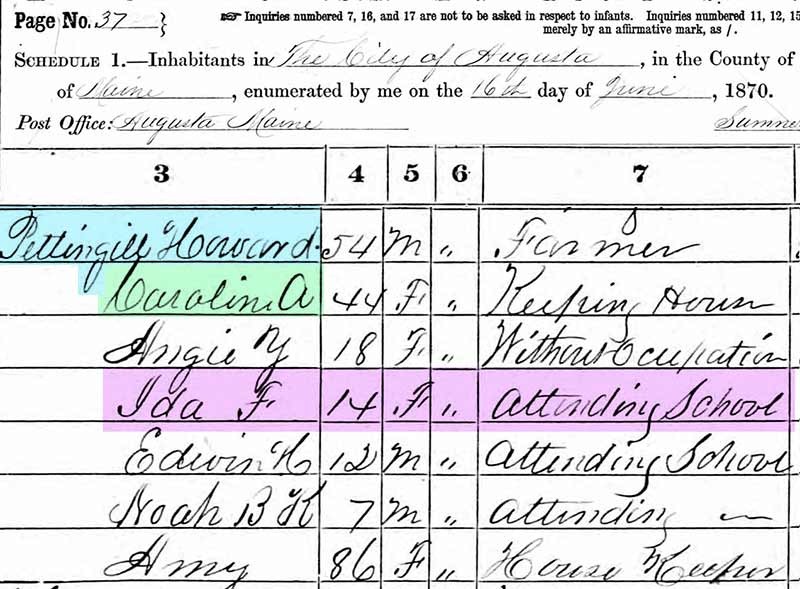 Page No. 37
☞ Inquiries numbered 7, 16, and 17 are not to be asked in respect to infants. Inquiries numbered 11, 12, 15
merely by an affirmative mark, as /.
SCHEDULE 1.—Inhabitants in The City of Augusta, in the County of
of Maine, enumerated by me on the 16th day of June, 1870.
Post Office: Augusta Maine Sumne
3 4 5 6 7
Pettingill Howard 54 M " Farmer
Caroline A 44 F " Keeping House
Angie Y 18 F " Without Ocupation
Ida F 14 F " Attending School
Edwin H 12 M " Attending School
Noah B K 7 M " Attending —
Amy 86 F " House Keeper